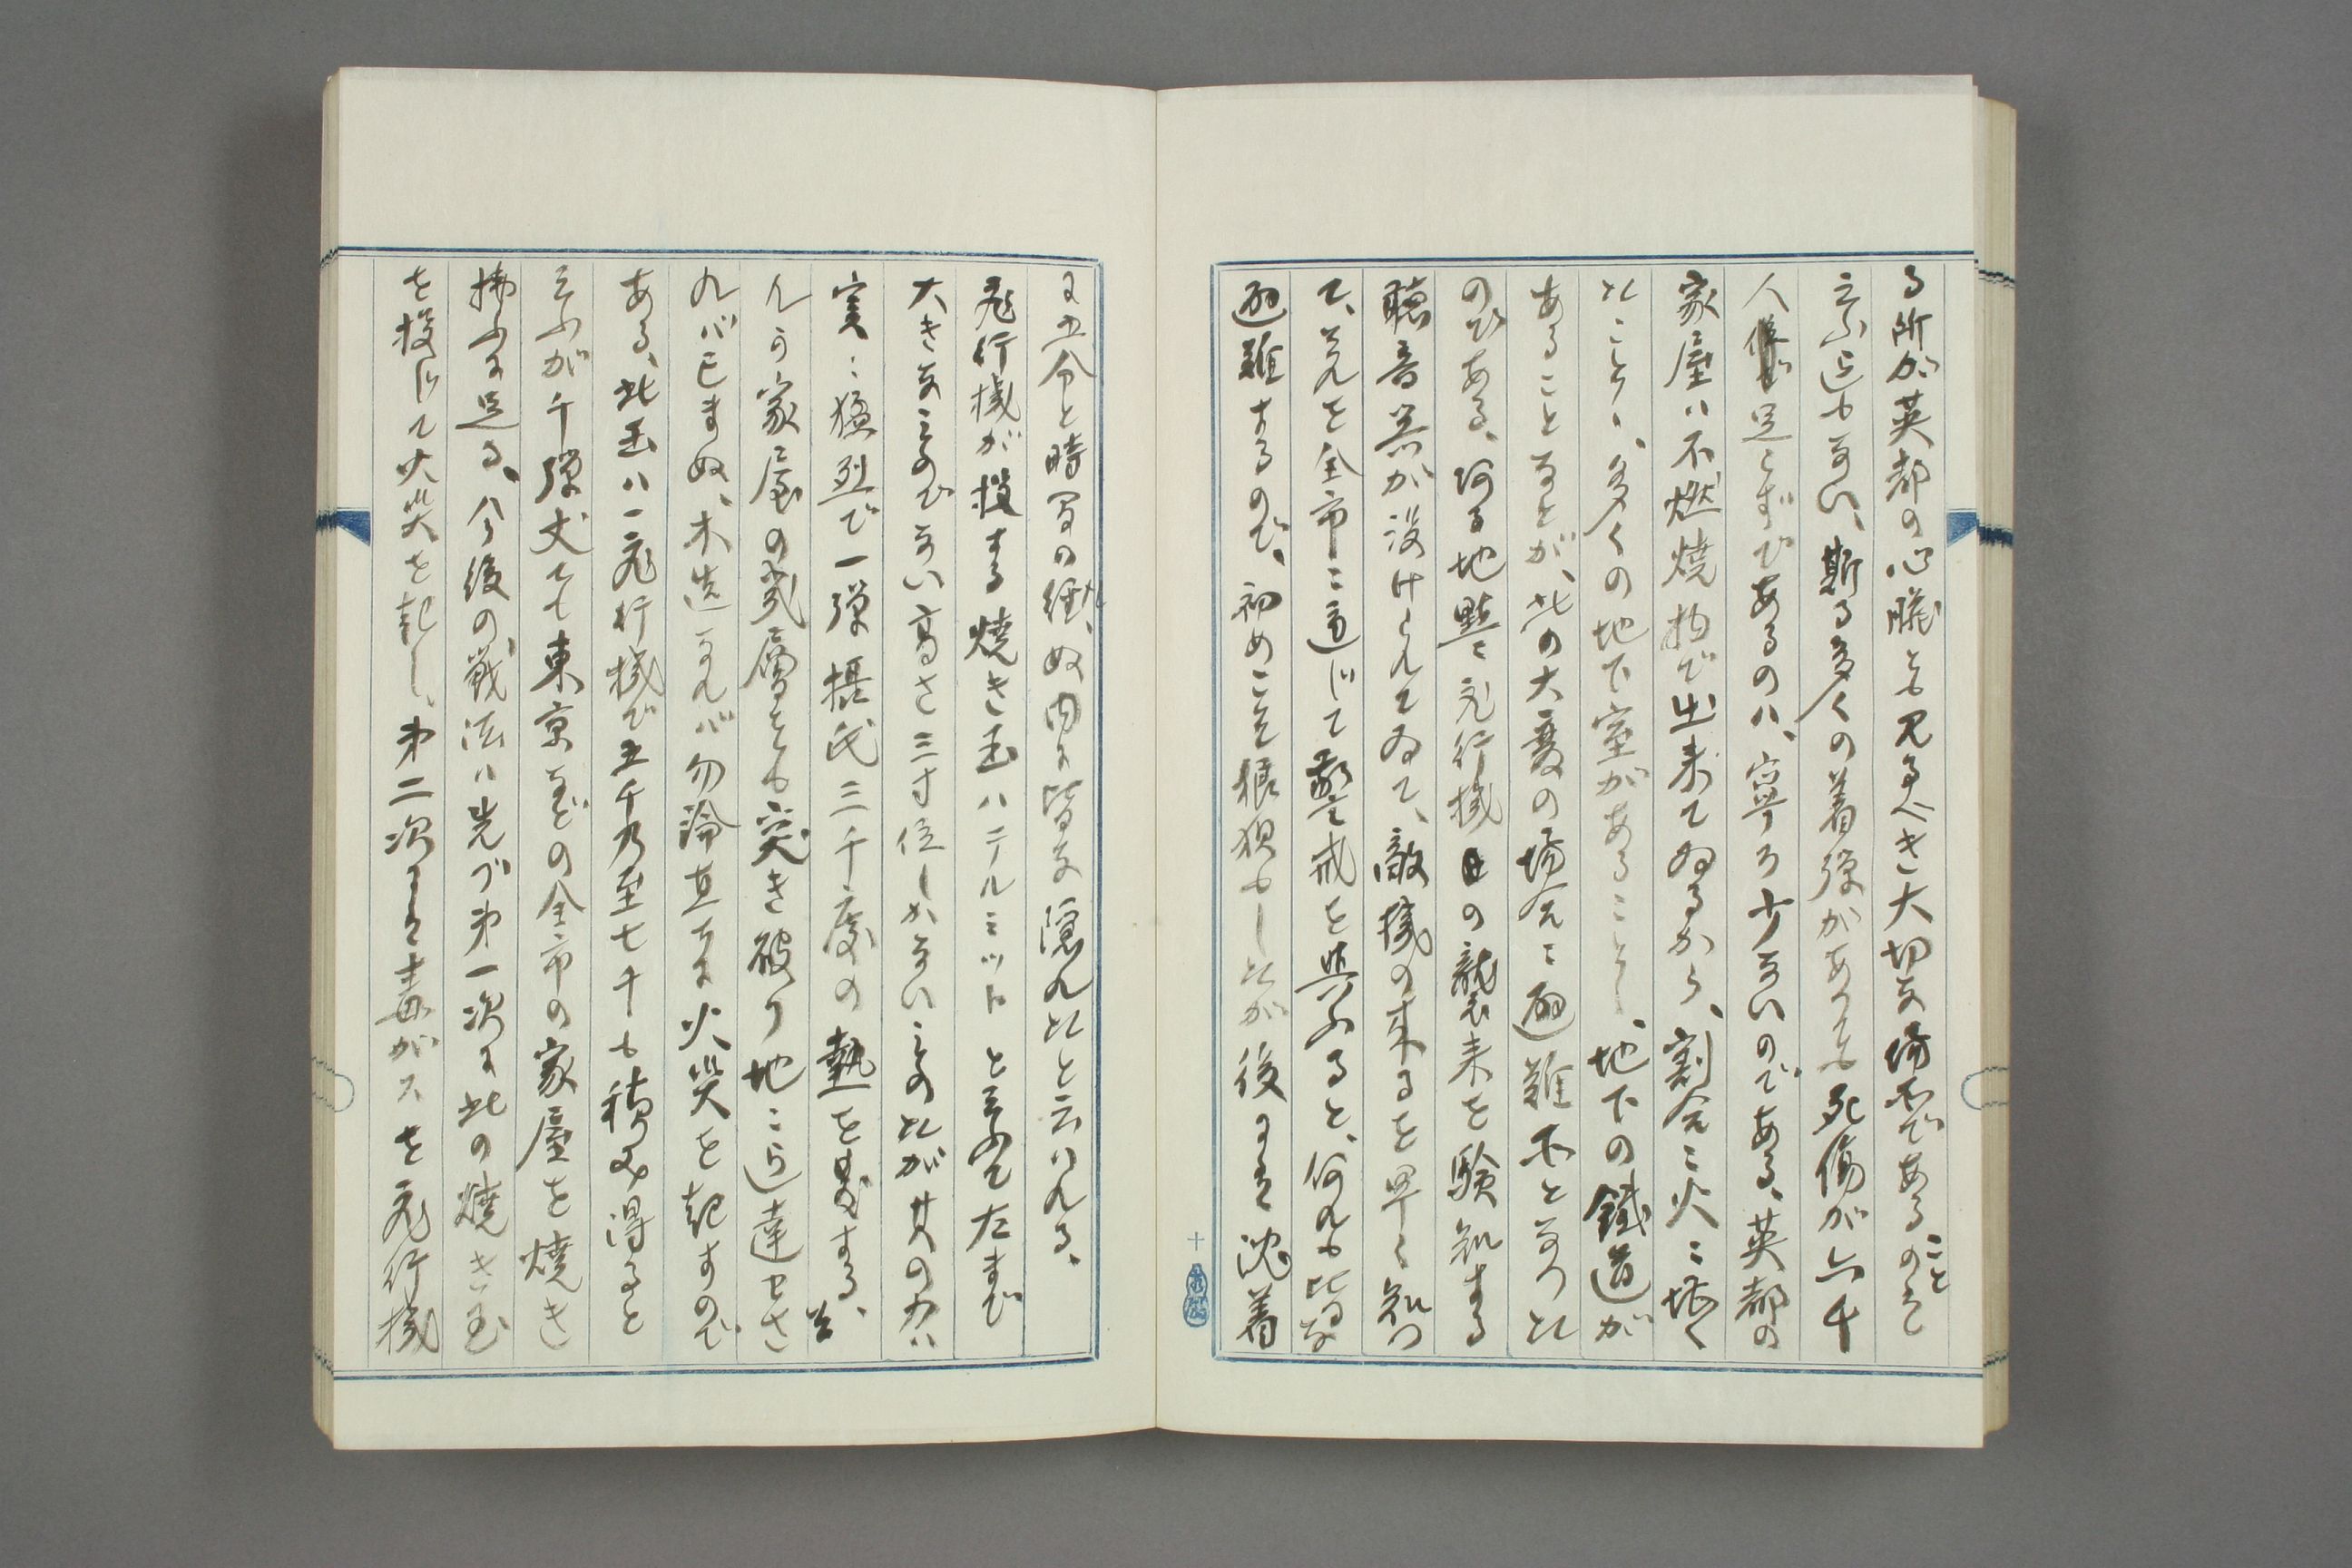 る所が英都の心臓とも見るべき大切な場所であることのみで
云ふ迄もない、斯る多くの着弾があつても死傷が六千
人足らずであるのハ、寧ろ少ないのである、英都の
家屋ハ不燃焼物で出来てゐるから、割合ニ火ニ堪へ
たこと、多くの地下室があること、地下の鐵道が
あることなどが、此の大変の場合ニ避難所となつた
のである、河る地點ニ飛行機の襲来を験知する
聴音器が設けられてゐて、敵機の来るを早く知つ
て、それを全市ニ通じて警戒を與ふると、何れも皆な
避難するので、初めこそ狼狽もしたが後にハ沈着
に五分と時間の経たぬ内に皆な隠れたと云はれる、
飛行機が投する焼き玉ハテルミットと云ふて左まで
大きなものでない高さ三寸位しかないものたが其の力ハ
実ニ猛烈で一弾摂氏三千度の熱を発する、
んな家屋の幾層をも突き破り地ニ迄達せさ
れバ已まぬ、木造なれバ勿論直ちに火災を起すので
ある、此玉ハ一飛行機で五千乃至七千も積み得ると
云ふが千弾丈ても東京などの全市の家屋を焼き
拂ふに足る、今後の戦法ハ先づ第一次に此の焼き玉
を投じて火災を起し、第二次にハ毒ガスを飛行機
十